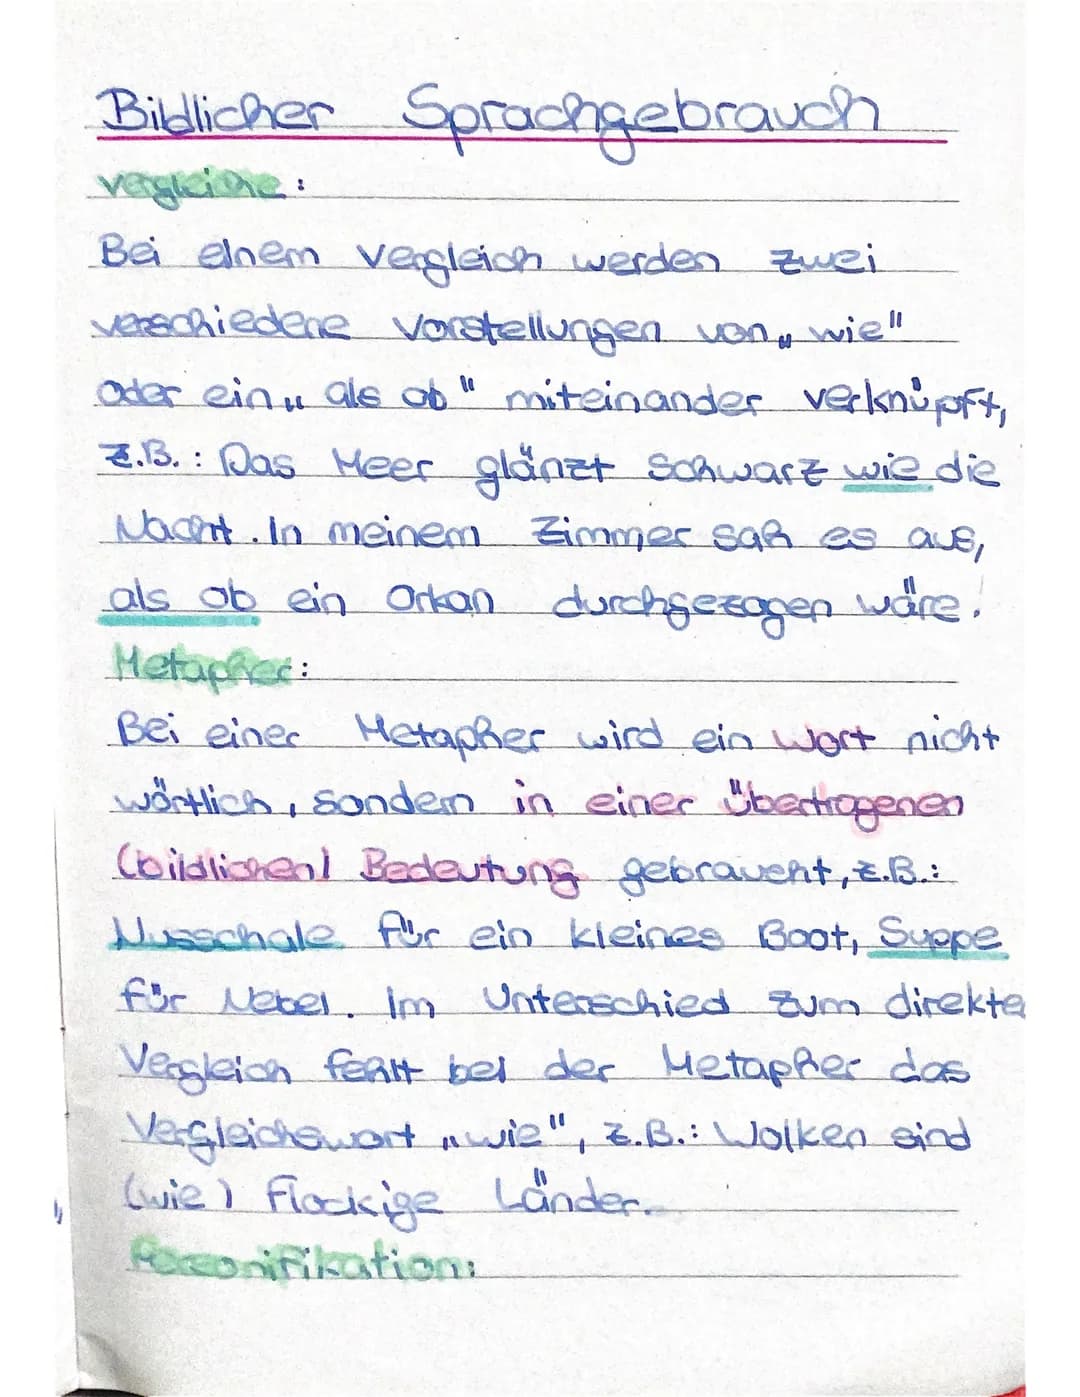 Bildlicher Sprachgebrauch
vergleiche:
Bei einem Vergleich werden zwei
verschiedene Vorstellungen von „wie"
oder ein „als ob" miteinander verknüpft,
z.B.: Das Meer glänzt schwarz wie die
Nacht. In meinem Zimmer sah es aus,
als ob ein Orkan durchgezogen wäre.
Metapher:
Bei einer Metapher wird ein Wort nicht
wörtlich, sondern in einer übertragenen
(bildlichen) Bedeutung gebraucht, z.B.:
Nusschale für ein kleines Boot, Suppe
für Nebel. Im Unterschied zum direkte
Vergleich fehlt bei der Metapher das
Vergleichswort „wie", z.B.: Wolken sind
(wie) flockige Länder.
Personifikation: